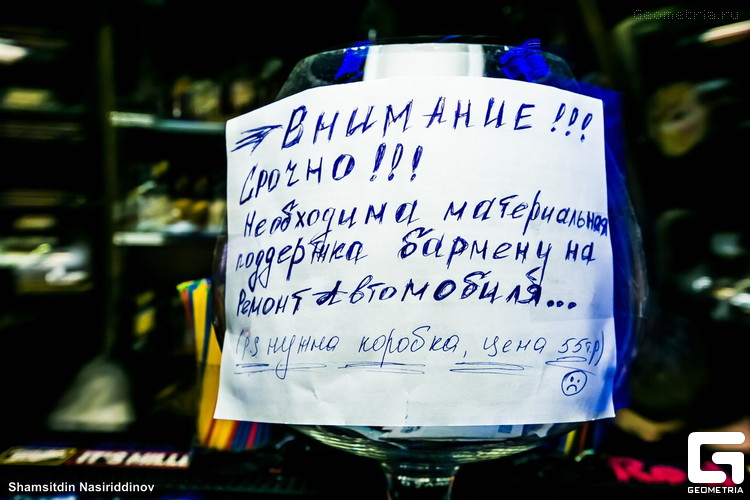 Geometria.ru
ВНИМАНИЕ!!!
Срочно!!!
Необходима материальная
поддержка бармену на
Ремонт Автомобиля...
(PS нужна коробка, цена 55т.р)
IT'S MILLE
Shamsitdin Nasiriddinov
GEOMETRIA